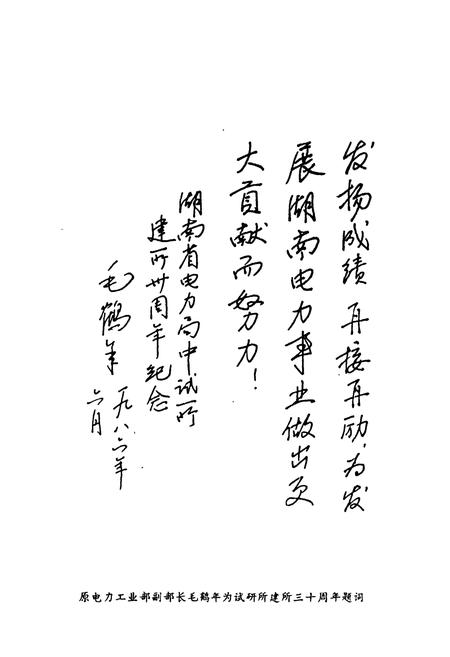 发扬成绩再接再励，为发
展湖南电力事业做出更
大贡献而努力！
湖南省电力局中试所
建所卅周年纪念
毛鹤年
一九八六年
六月
原电力工业部副部长毛鹤年为试研所建所三十周年题词